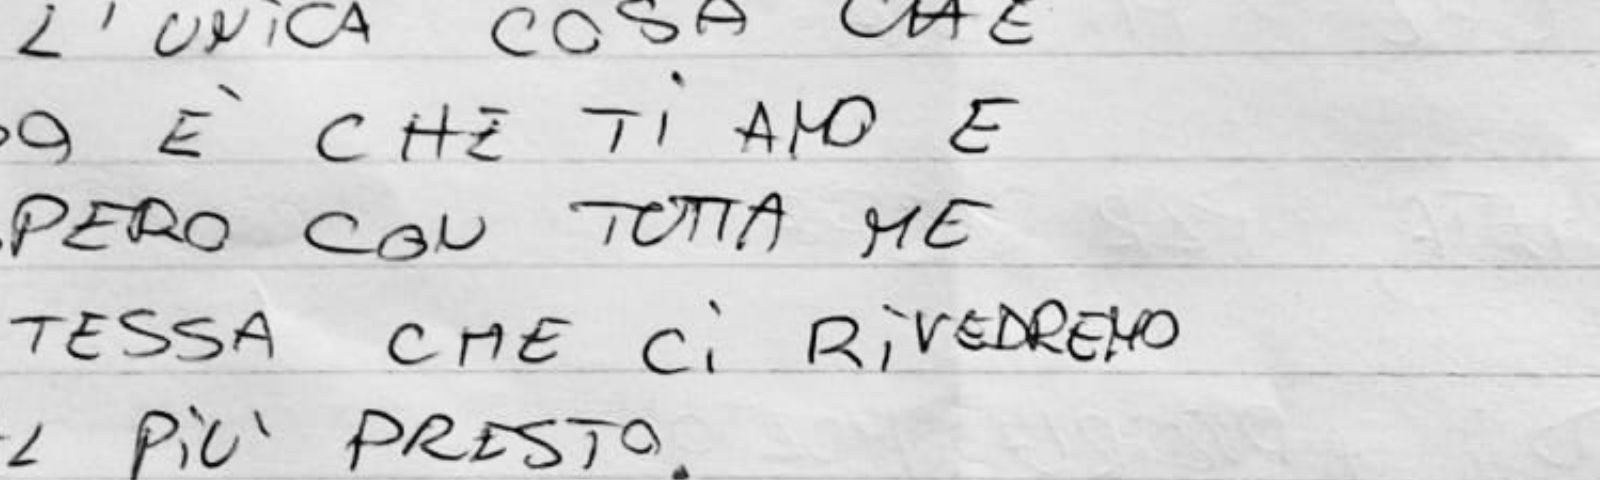 L'UNICA COSA CHE
È CHE TI AMO E
PERO CON TUTTA ME
TESSA CHE CI RIVEDREMO
L PIÙ PRESTO.